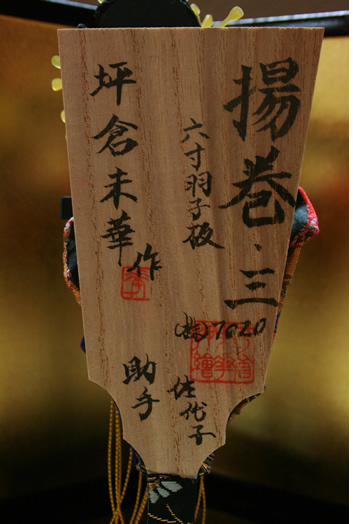 揚巻・三
六寸羽子板
㈱7020
佐代子
坪倉未華作
助手